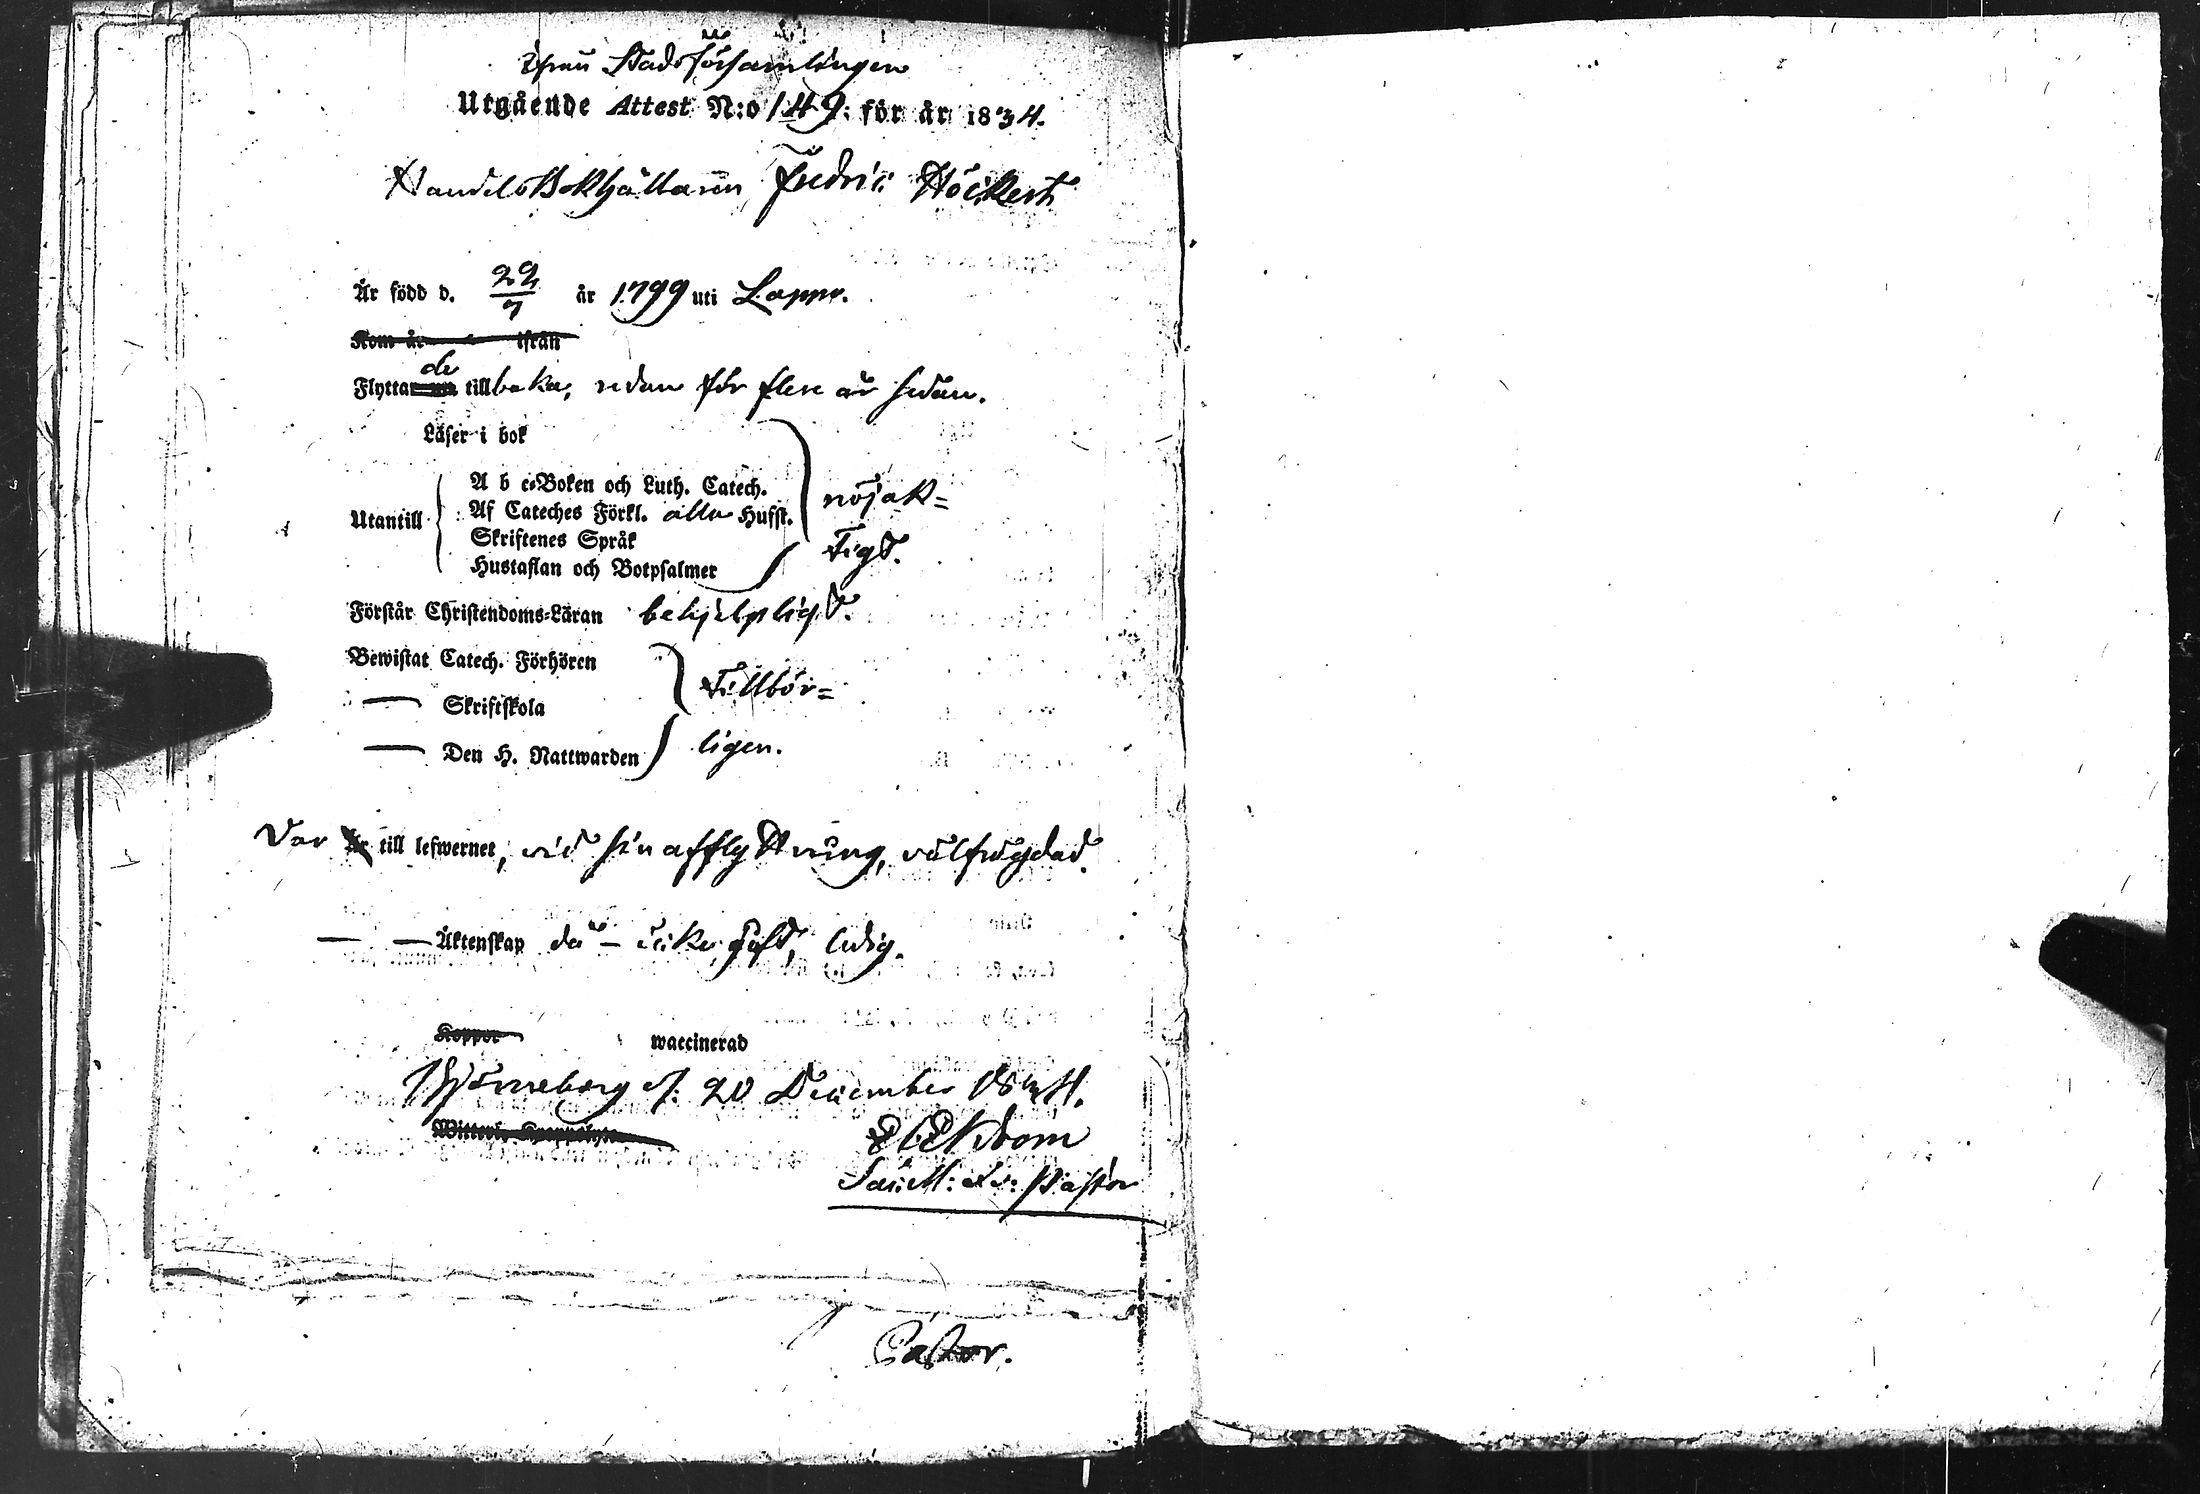 ifrån Stadsförsamlingen
Utgående Attest N:o 149: för år 1834.
Handels Bokhållaren Fredric Höckert
Är född d. 29/7 år 1799 uti Lappo.
Kom år ifrån
Flyttade tillbaka, redan för flere år sedan.
Läser i bok
A b c-Boken och Luth. Catech.
Utantill Af Cateches Förkl. alla Hufst. nöjak=
Skriftenes Språk tigt.
Hustaflan och Botpsalmer
Förstår Christendoms-Läran behjelpligt.
Bewistat Catech. Förhören
— Skriftskola Tillbör=
— Den H. Nattwarden ligen.
Var Är till lefwernet, vid sin afflyttning, välfrägdad.
— — Äktenskap då — icke fäst, ledig.
Koppor waccinerad
Björneborg d. 20 December 1834.
Ekström
Pastor
Pastor.